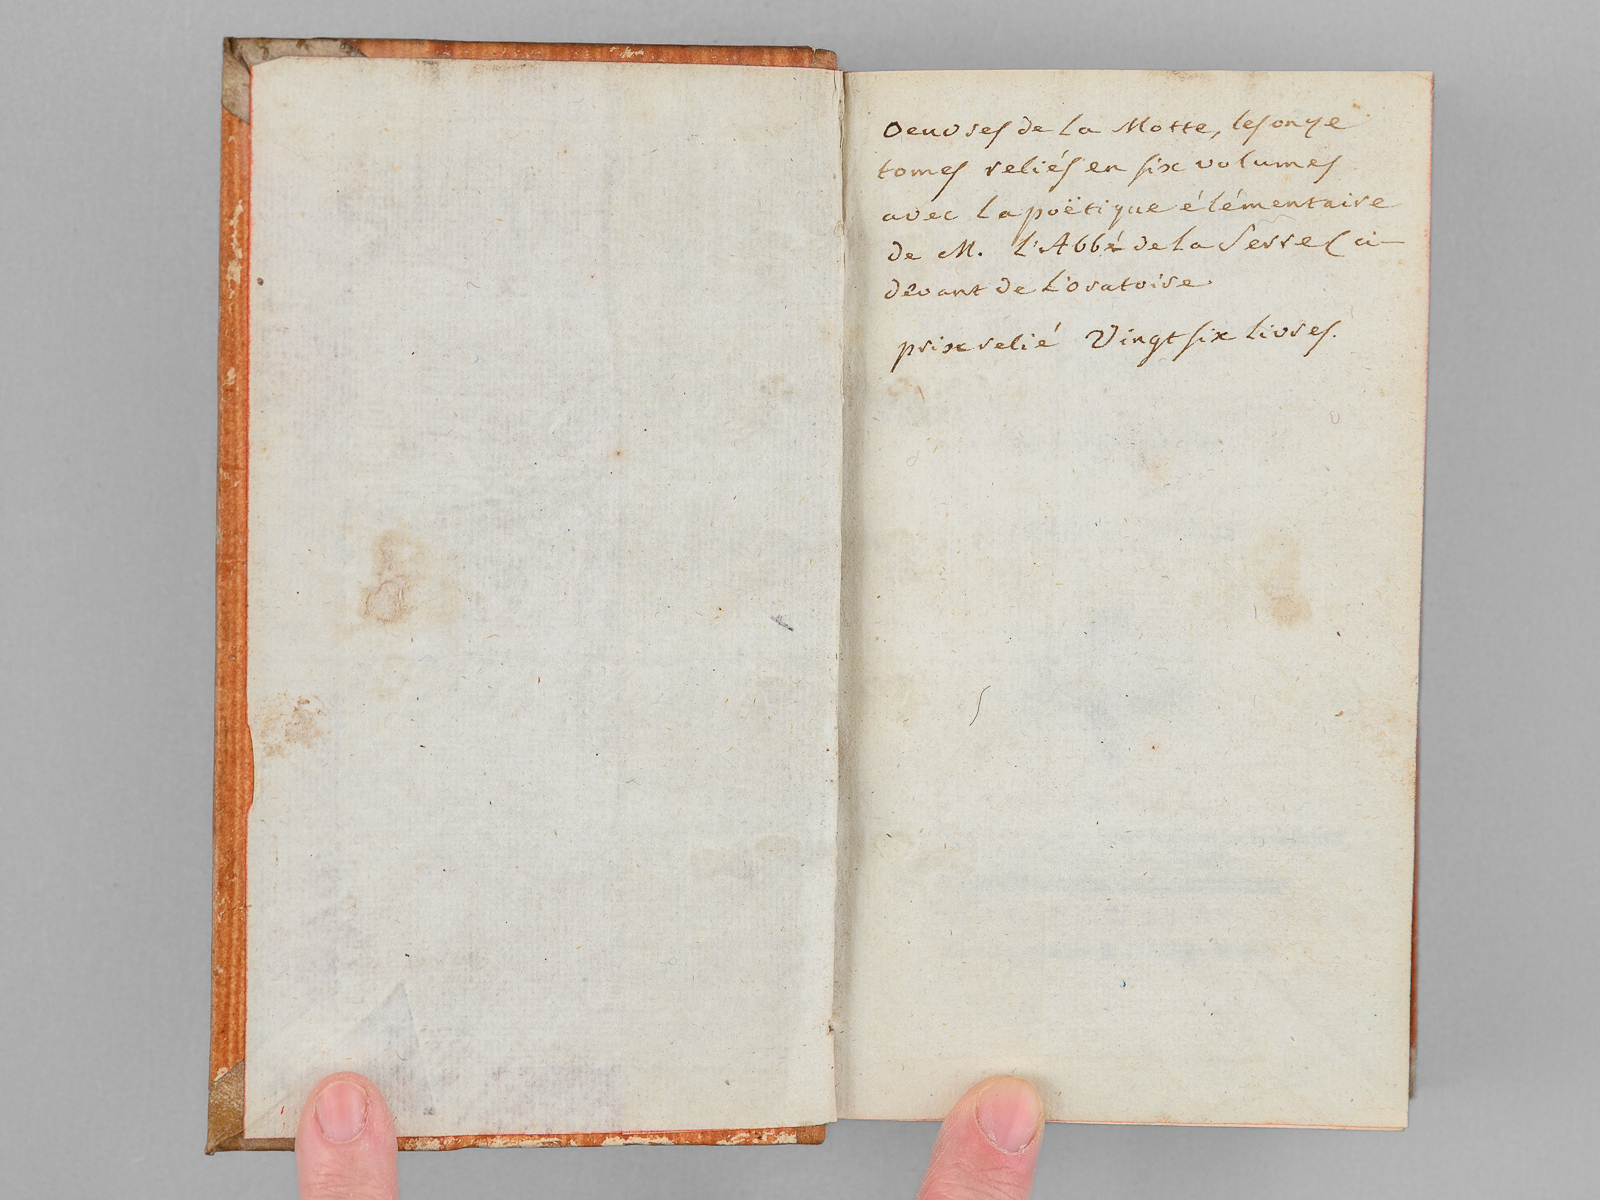 Oeuvres de La Motte, les onze
tomes reliés en six volumes
avec La poëtique élémentaire
de M. L'Abbé de La Serre Ci-
devant de L'oratoire
prix relié Vingt six Livres.